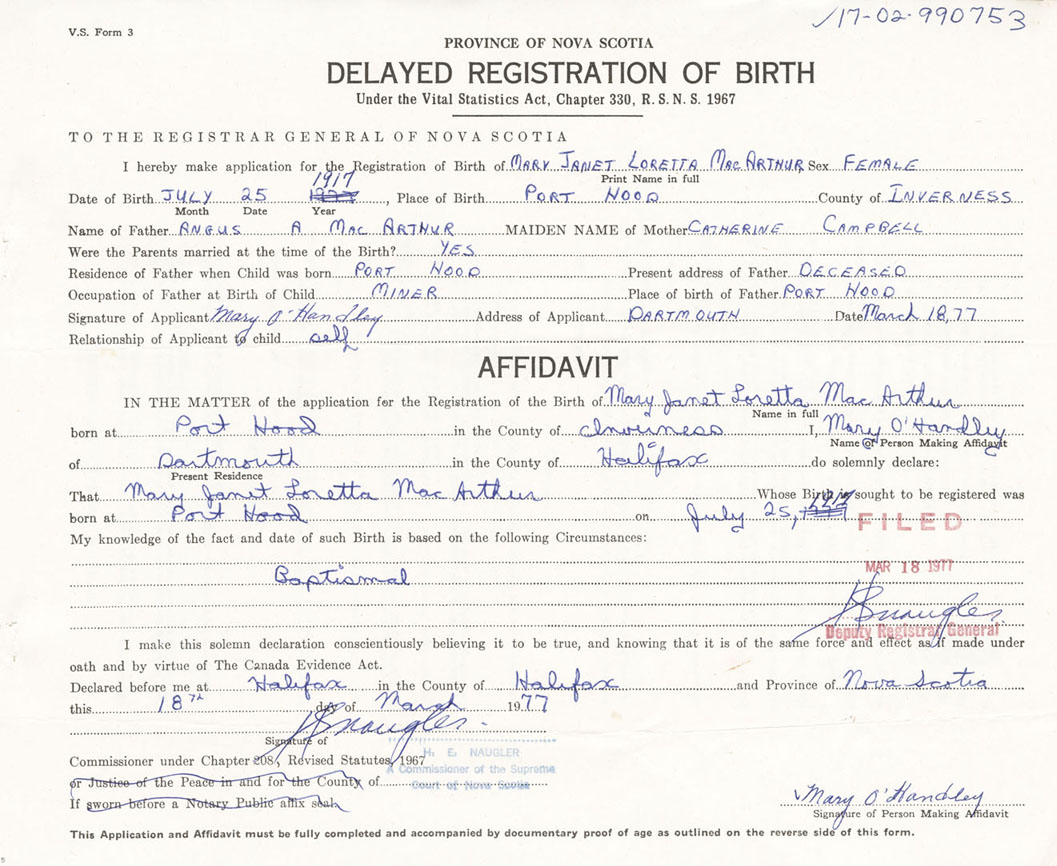 V.S. Form 3
√17-02-990753
PROVINCE OF NOVA SCOTIA
DELAYED REGISTRATION OF BIRTH
Under the Vital Statistics Act, Chapter 330, R.S.N.S. 1967
TO THE REGISTRAR GENERAL OF NOVA SCOTIA
I hereby make application for the Registration of Birth of MARY JANET LORETTA MACARTHUR Sex FEMALE
Print Name in full
1917
Date of Birth JULY 25 1977, Place of Birth PORT HOOD County of INVERNESS
Month Date Year
Name of Father ANGUS A MAC ARTHUR MAIDEN NAME of Mother CATHERINE CAMPBELL
Were the Parents married at the time of the Birth? YES
Residence of Father when Child was born PORT HOOD Present address of Father DECEASED
Occupation of Father at Birth of Child MINER Place of birth of Father PORT HOOD
Signature of Applicant Mary O'Handley Address of Applicant DARTMOUTH Date March 18,77
Relationship of Applicant to child self
AFFIDAVIT
IN THE MATTER of the application for the Registration of the Birth of Mary Janet Loretta Mac Arthur
Name in full
born at Port Hood in the County of Inverness I, Mary O'Handley
Name of Person Making Affidavit
of Dartmouth in the County of Halifax do solemnly declare:
Present Residence
That Mary Janet Loretta Mac Arthur Whose Birth is sought to be registered was
1917
born at Port Hood on July 25, 1977
FILED
My knowledge of the fact and date of such Birth is based on the following Circumstances:
MAR 18 1977
Baptismal
HE Naugler
Deputy Registrar General
I make this solemn declaration conscientiously believing it to be true, and knowing that it is of the same force and effect as if made under
oath and by virtue of The Canada Evidence Act.
Declared before me at Halifax in the County of Halifax and Province of Nova Scotia
this 18th day of March 1977
HE Naugler
Signature of
H. E. NAUGLER
Commissioner under Chapter 208, Revised Statutes, 1967
A Commissioner of the Supreme
or Justice of the Peace in and for the County of
Court of Nova Scotia
If sworn before a Notary Public affix seal,
√Mary O'Handley
Signature of Person Making Affidavit
This Application and Affidavit must be fully completed and accompanied by documentary proof of age as outlined on the reverse side of this form.